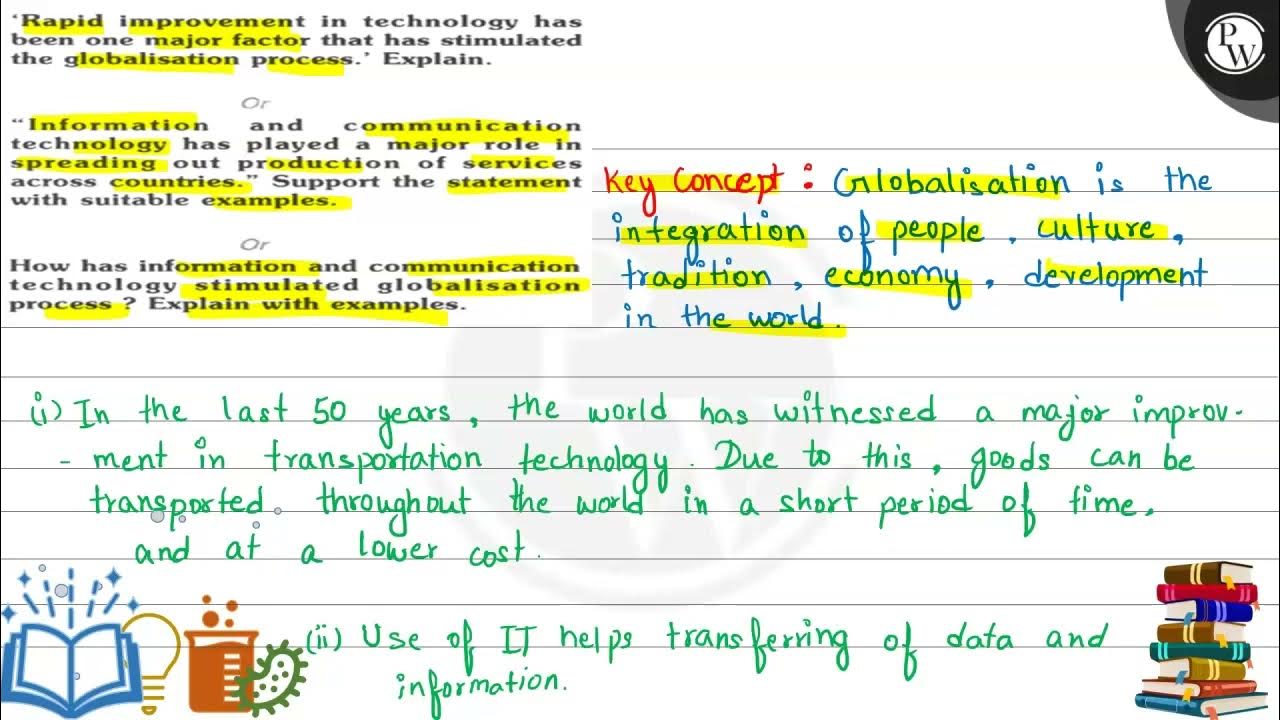 ‘Rapid improvement in technology has
been one major factor that has stimulated
the globalisation process.’ Explain.
Or
“Information and communication
technology has played a major role in
spreading out production of services
across countries.” Support the statement
with suitable examples.
Or
How has information and communication
technology stimulated globalisation
process ? Explain with examples.
PW
Key Concept : Globalisation is the
integration of people , culture ,
tradition , economy , development
in the world .
(i) In the last 50 years, the world has witnessed a major improv-
- ment in transportation technology. Due to this, goods can be
transported throughout the world in a short period of time,
and at a lower cost.
(ii) Use of IT helps transferring of data and
information.